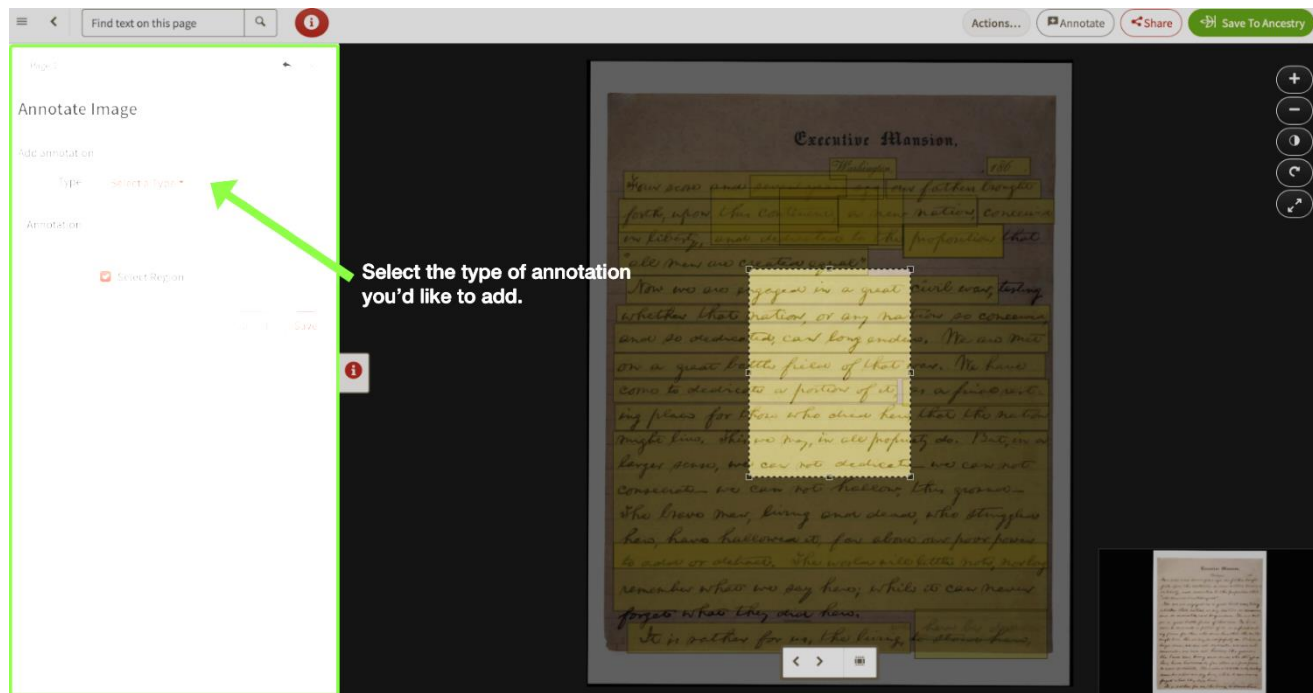 Find text on this page
Actions...
Annotate
Share
Save To Ancestry
Page 1
Annotate Image
Add annotation
Type
Select a Type
Annotation
Select Region
Save
Select the type of annotation
you'd like to add.
Executive Mansion,
Washington, , 186
Four score and seven years ago our fathers brought
forth, upon this continent, a new nation, conceived
in liberty, and dedicated to the proposition that
"all men are created equal"
Now we are engaged in a great civil war, testing
whether that nation, or any nation so conceived,
and so dedicated, can long endure. We are met
on a great battle field of that war. We have
come to dedicate a portion of it, as a final rest-
ing place for those who died here, that the nation
might live. This we may, in all propriety do. But, in a
larger sense, we can not dedicate we can not
consecrate we can not hallow, this ground
The brave men, living and dead, who struggled
here, have hallowed it, far above our poor power
to add or detract. The world will little note, nor long
remember what we say here; while it can never
forget what they did here.
It is rather for us, the living, to stand here,